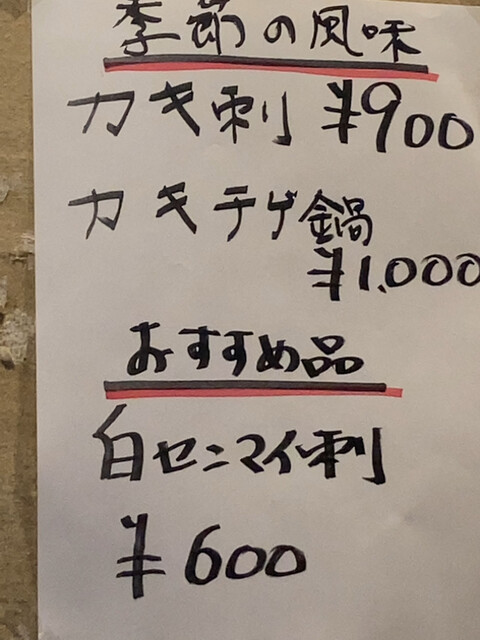 季節の風味
カキ刺 ¥900
カキチゲ鍋
¥1.000
おすすめ品
白センマイ刺
¥600